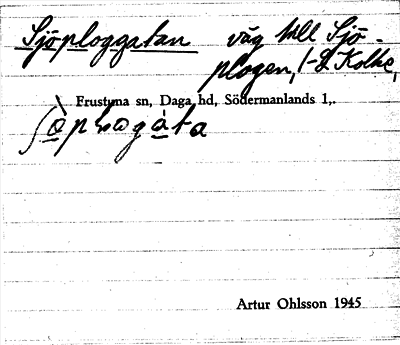 Sjöploggatan väg till Sjö-
plogen,
Frustuna sn, Daga hd, Södermanlands l,.
Artur Ohlsson 1945